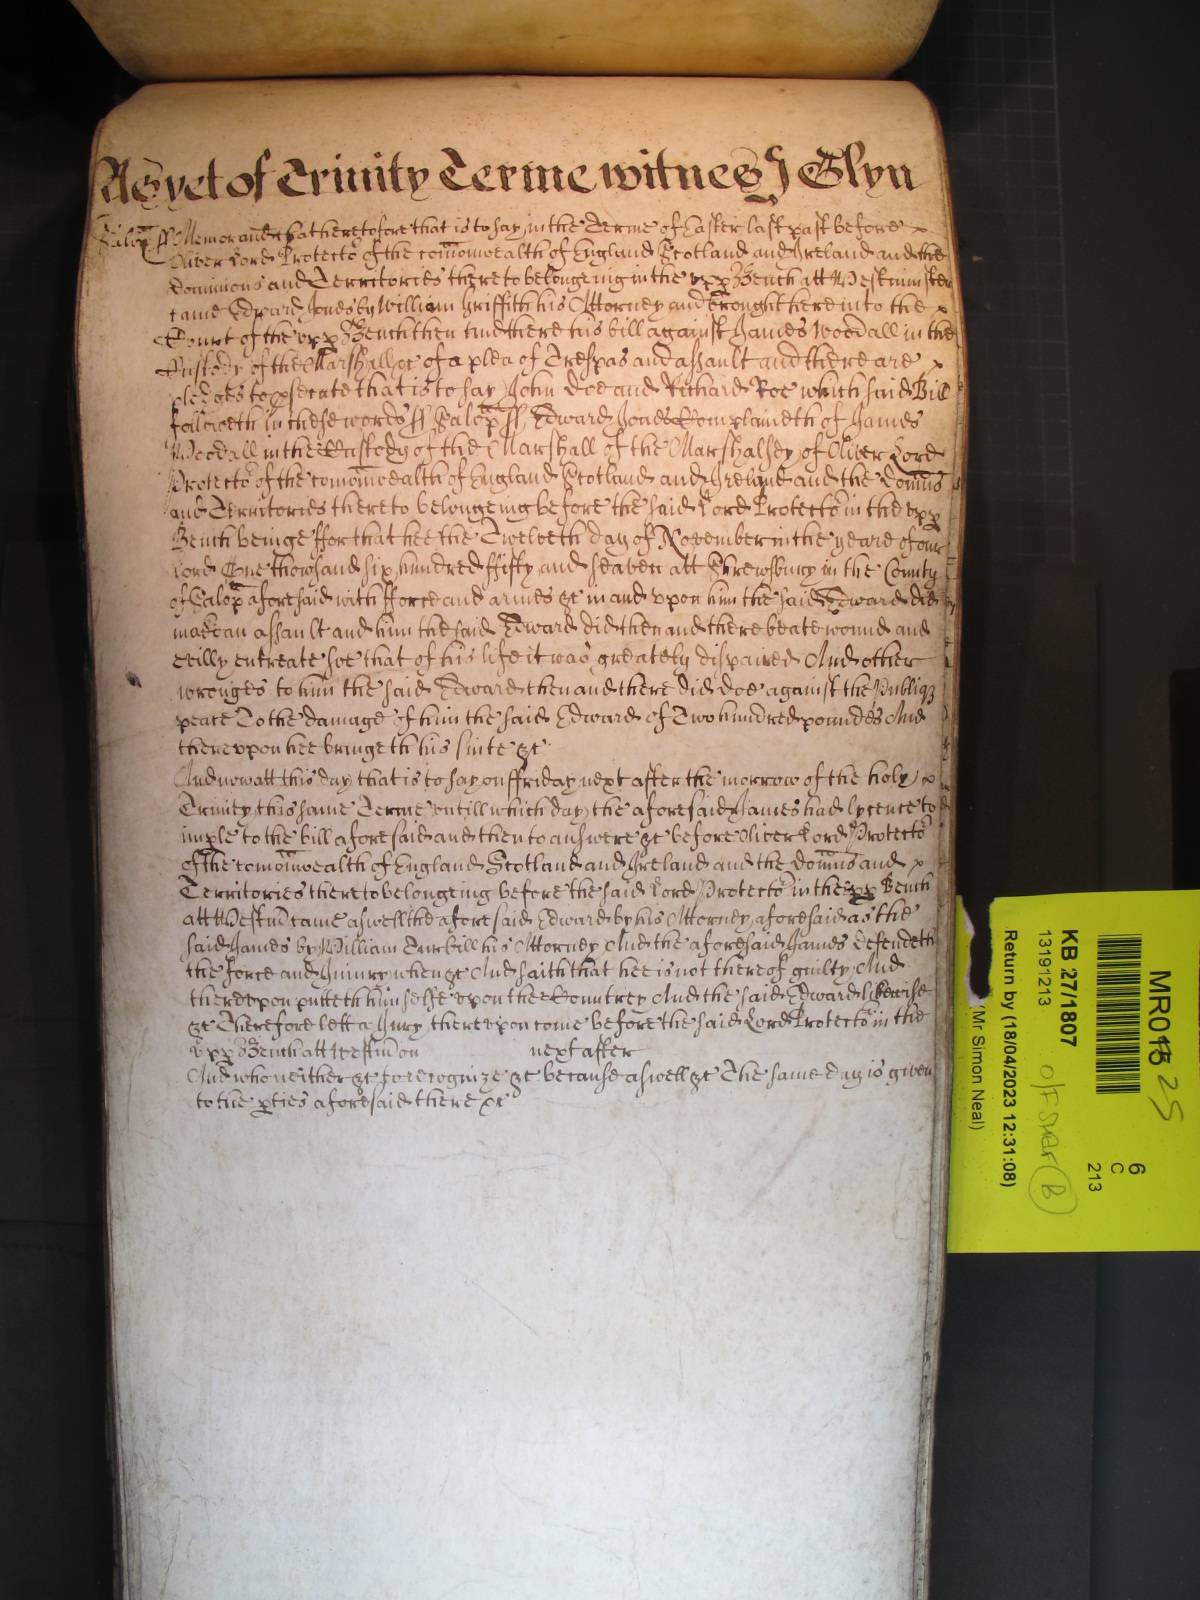 As yet of Trinity Terme witnes J Glyn
Salop ss Memorand that heretofore that is to say in the Terme of Easter last past before x
Oliver Lord Protector of the comonwealth of England Scotland and Ireland and the
dominions and Territories thereto belongeing in the upp Bench att Westminster
came Edward Jones by William Griffith his Attorney and brought here into the x
Court of the upp Bench then and there his bill against James Woodall in the
Custody of the Marshall &c of a plea of Trespas and assault and there are x
pledges to psecute that is to say John Doe and Richard Roe which said Bill
followeth in these words ss Salop ss Edward Jones Complaineth of James
Woodall in the Custody of the Marshall of the Marshalsey of Oliver Lord
Protector of the comonwealth of England Scotland and Ireland and the Domins
and Territories thereto belongeing before the said Lord Protector in the upp
Bench beinge ffor that hee the Twelveth day of November in the yeare of our
Lord One thowsand six hundred ffifty and seaven att Shrewsbury in the County
of Salop aforesaid with fforce and armes &c in and upon him the said Edward did
make an assault and him the said Edward did then and there beate wound and
evilly entreate soe that of his life it was greately dispaired And other
wronges to him the said Edward then and there did doe against the Publiq
peace To the damage of him the said Edward of Two hundred poundes And
thereupon hee bringeth his suite &c
And now att this day that is to say on ffriday next after the morrow of the holy x
Trinity this same Terme untill which day the aforesaid James had lycence to
imple to the bill aforesaid and then to answere &c before Oliver Lord Protector
of the comonwealth of England Scotland and Ireland and the Domins and x
Territories thereto belongeing before the said Lord Protector in the upp Bench
att Westm came aswell the aforesaid Edward by his Attorney aforesaid as the
said James by William Turbill his Attorney And the aforesaid James defendeth
the force and Iniury when &c And saith that hee is not thereof guilty And
thereupon putteth himselfe upon the Countrey And the said Edward likewise
&c Therefore lett a Jury thereupon come before the said Lord Protector in the
upp Bench att Westm on next after
And who neither &c to recognize &c because aswell &c The same day is given
to the pties aforesaid there &c
MR015 25
6
C
213
KB 27/1807
13191213 O/F Shelf B
Return by (18/04/2023 12:31:08)
(Mr Simon Neal)